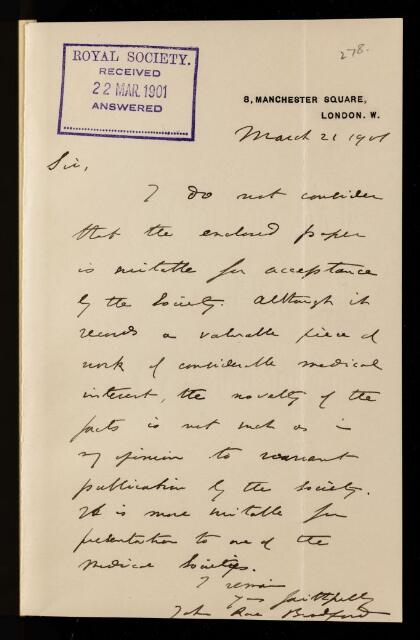 278.
ROYAL SOCIETY.
RECEIVED
22 MAR. 1901
ANSWERED
8, MANCHESTER SQUARE,
LONDON. W.
March 21 1901
Sir,
I do not consider
that the enclosed paper
is suitable for acceptance
by the Society. Although it
records a valuable piece of
work of considerable medical
interest, the novelty of the
facts is not such as in
my opinion to warrant
publication by the Society.
It is more suitable for
presentation to one of the
Medical Societies.
I remain
Yours faithfully
John Rose Bradford